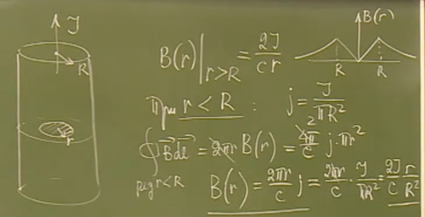 J
R
r
B(r)|_{r>R} = 2J/cr
B(r)
R R
При r < R : j = J/πR²
∮ B⃗ dl⃗ = 2πr B(r) = 4π/c j·πr²
r<R
B(r) = 2πr/c j = 2πr/c · J/πR² = 2J/c r/R²